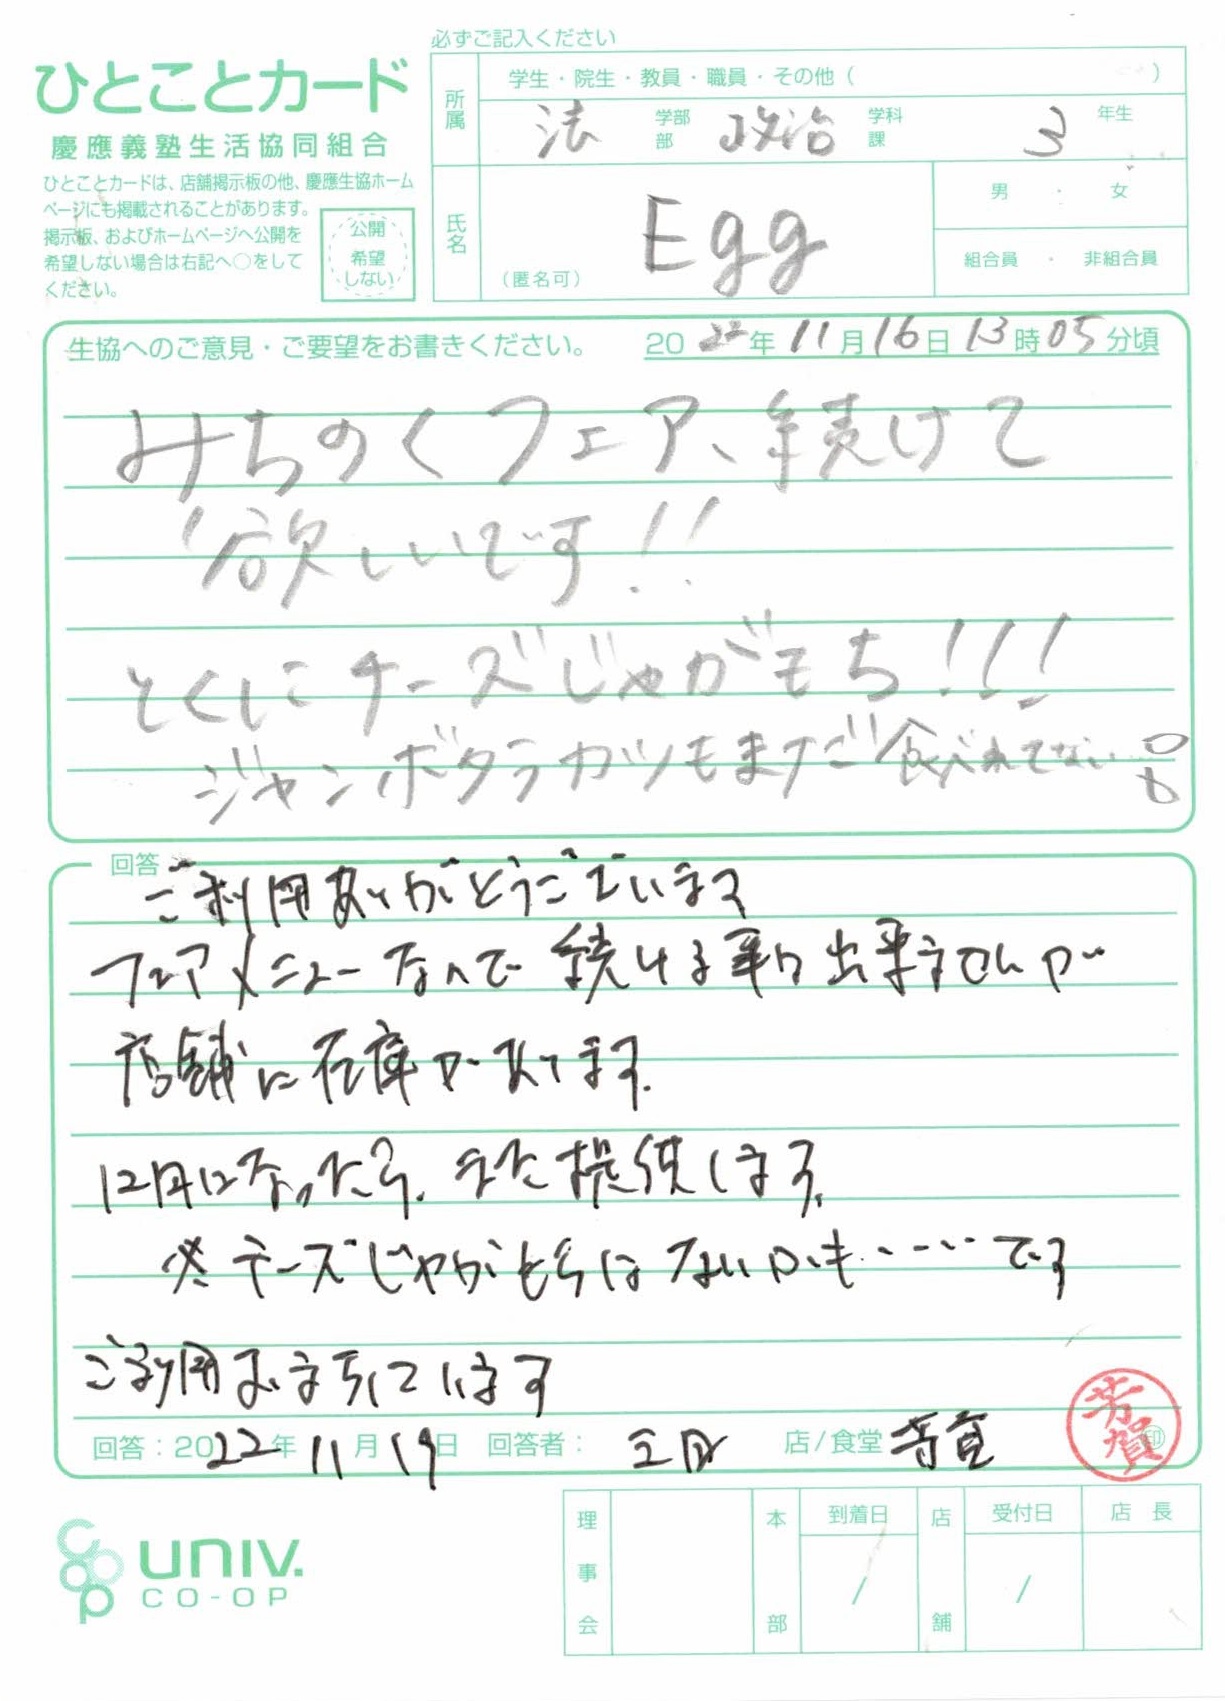 必ずご記入ください
ひとことカード
慶應義塾生活協同組合
ひとことカードは、店舗掲示板の他、慶應生協ホーム
ページにも掲載されることがあります。
掲示板、およびホームページへ公開を
希望しない場合は右記へ○をして
ください。
公開
希望
しない
所属
学生・院生・教員・職員・その他（ ）
法 学部 部 政治 学科 課 3 年生
氏名
Egg
（匿名可）
男 ・ 女
組合員 ・ 非組合員
生協へのご意見・ご要望をお書きください。 2022年11月16日13時05分頃
みちのくフェア、続けて
欲しいです!!
とくにチーズじゃがもち!!!
ジャンボタラカツもまだ食べれてない
回答
ご利用ありがとうございます
フェアメニューなんで続ける事は出来ませんが
店舗に在庫があります。
12月になったら、また提供します。
※チーズじゃがもちはないかも……です
ご利用おまちしています
回答：2022年11月19日 回答者： 店/食堂 芳賀
芳賀
印
univ.
CO-OP
coop
理事会
本部
到着日
/
店舗
受付日
/
店長